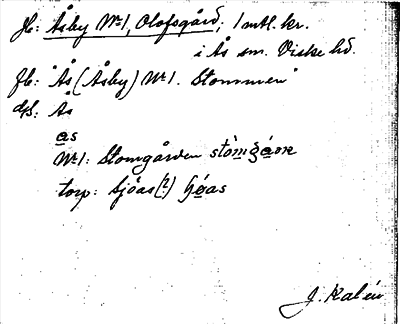 Jb: Åsby Nº1, Olofsgård; 1 mtl. kr.
i Ås sn. Viske hd.
Jb: "Ås (Åsby) Nº1. Stommen"
dſs: Ås
as
Nº1: Stomgården
torp: Sjöas(?)
J. Kalén